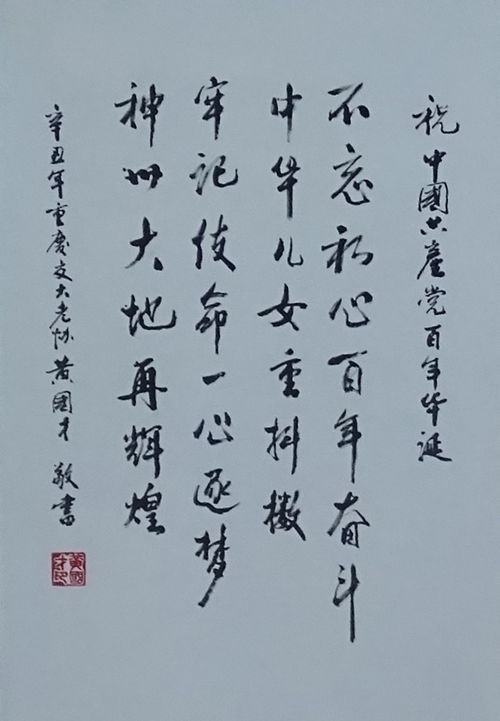 祝中國共產党百年华诞
不忘初心百年奋斗
中华儿女重抖擞
牢记使命一心逐梦
神州大地再辉煌
辛丑年重慶交大老协黄國才 敬書
黄國才印